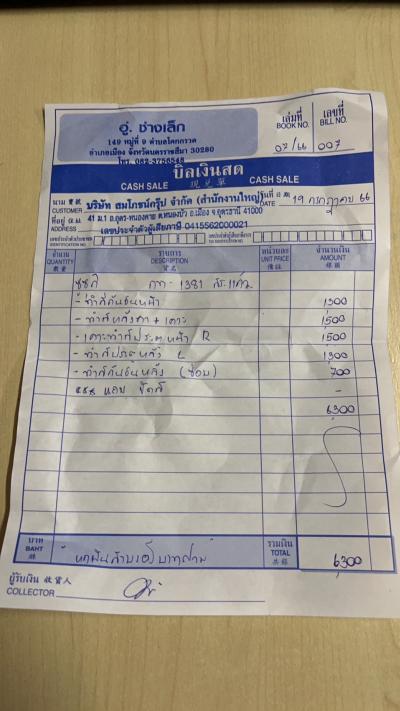 อู่ ช่างเล็ก
149 หมู่ที่ 9 ตำบลโคกกรวด
อำเภอเมือง จังหวัดนครราชสีมา 30280
โทร. 082-3756548
เล่มที่ เลขที่
BOOK NO. BILL NO.
07/66 007
บิลเงินสด
CASH SALE 現兌單 CASH SALE
นาม
CUSTOMER บริษัท สมโภชน์กรุ๊ป จำกัด (สำนักงานใหญ่) วันที่ DATE 19 กรกฎาคม 66
ที่อยู่
ADDRESS 41 ม.1 ถ.อุดร-หนองคาย ต.หมูม่น อ.เมือง จ.อุดรธานี 41000
เลขประจำตัวผู้เสียภาษี 0415562000021
จำนวน รายการ หน่วยละ จำนวนเงิน
QUANTITY DESCRIPTION UNIT PRICE AMOUNT
數量 貨名 備註 銀碼
1381 สระแก้ว
- ทำสีกันชนหน้า 1300
- ทำสีหลังคา + เคาะ 1,500
- เคาะทำสีประตูหน้า R 1500
- ทำสีประตูหลัง L 1,300
- ทำสีกันชนหลัง (ซ่อม) 700
แถม ขัดสี -
6300
บาท
BAHT
รวมเงิน
TOTAL 6300
共銀
หกพันสามร้อยบาทถ้วน
ผู้รับเงิน 收貨人
COLLECTOR